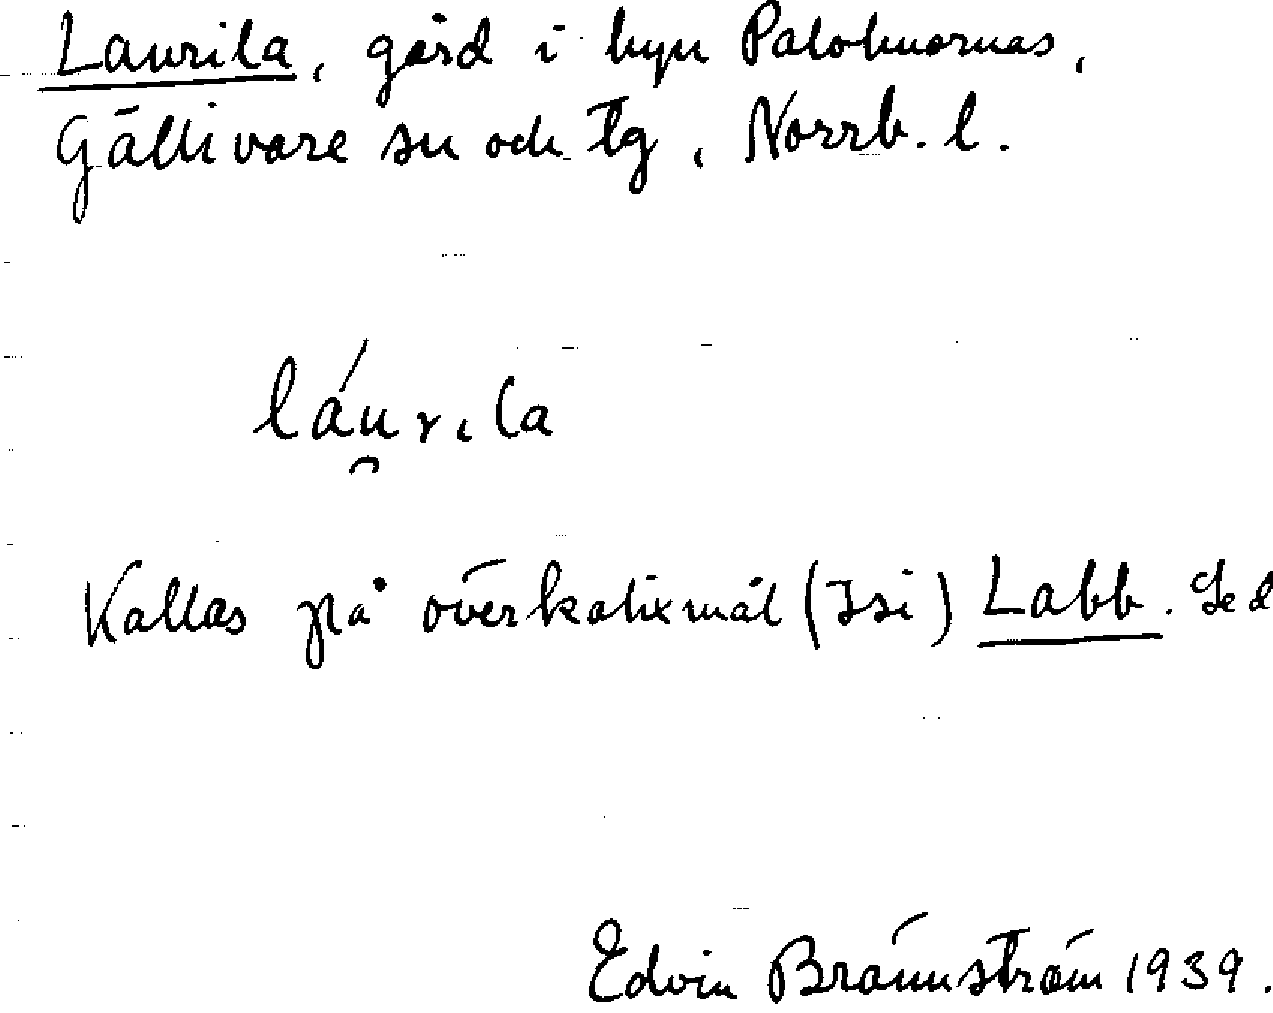 Laurila, gård i byn Palohuornas,
Gällivare sn och tg, Norrb. l.
láu̯rila
Kallas på överkalixmål (Isi) Labb. Se d
Edvin Brännström 1939.